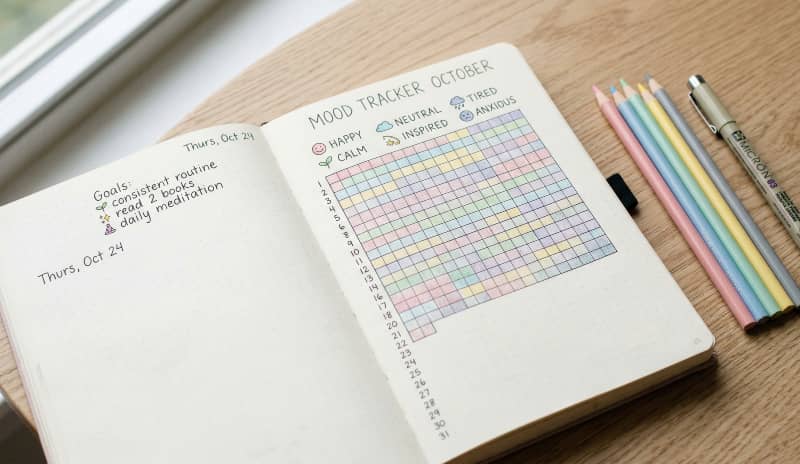 Thurs, Oct 24
Goals:
consistent routine
read 2 books
daily meditation
Thurs, Oct 24
MOOD TRACKER OCTOBER
HAPPY
NEUTRAL
TIRED
CALM
INSPIRED
ANXIOUS
1
2
3
4
5
6
8
9
10
11
12
13
14
16
17
18
20
21
22
23
24
25
26
27
28
29
30
31
MICRON